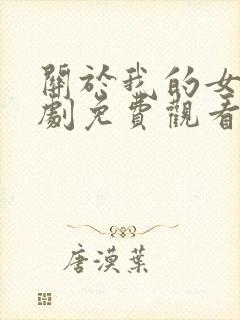 關於我的女
劇免費觀看
唐漠葉